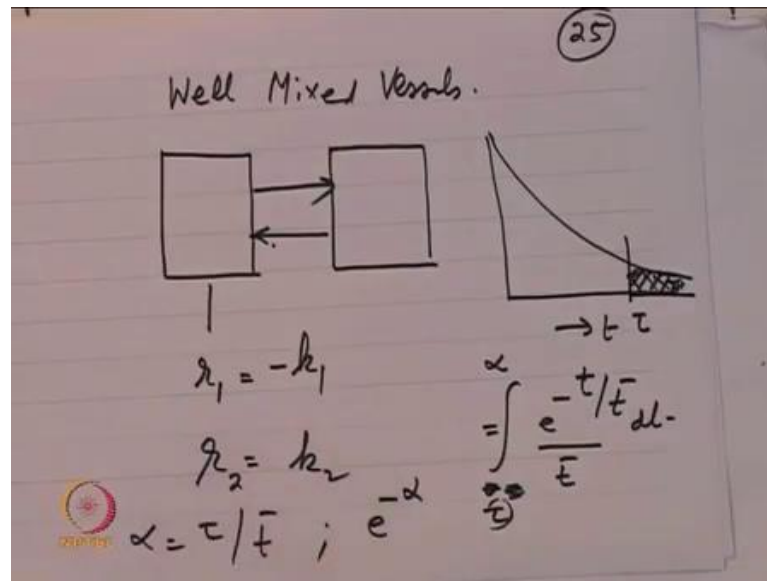 25
Well Mixed Vessels.
→ t τ
r₁ = -k₁
r₂ = k₂
= ∫ e^{-t/t̄} / t̄ dt
α
τ
α = τ/t̄ ; e^{-α}